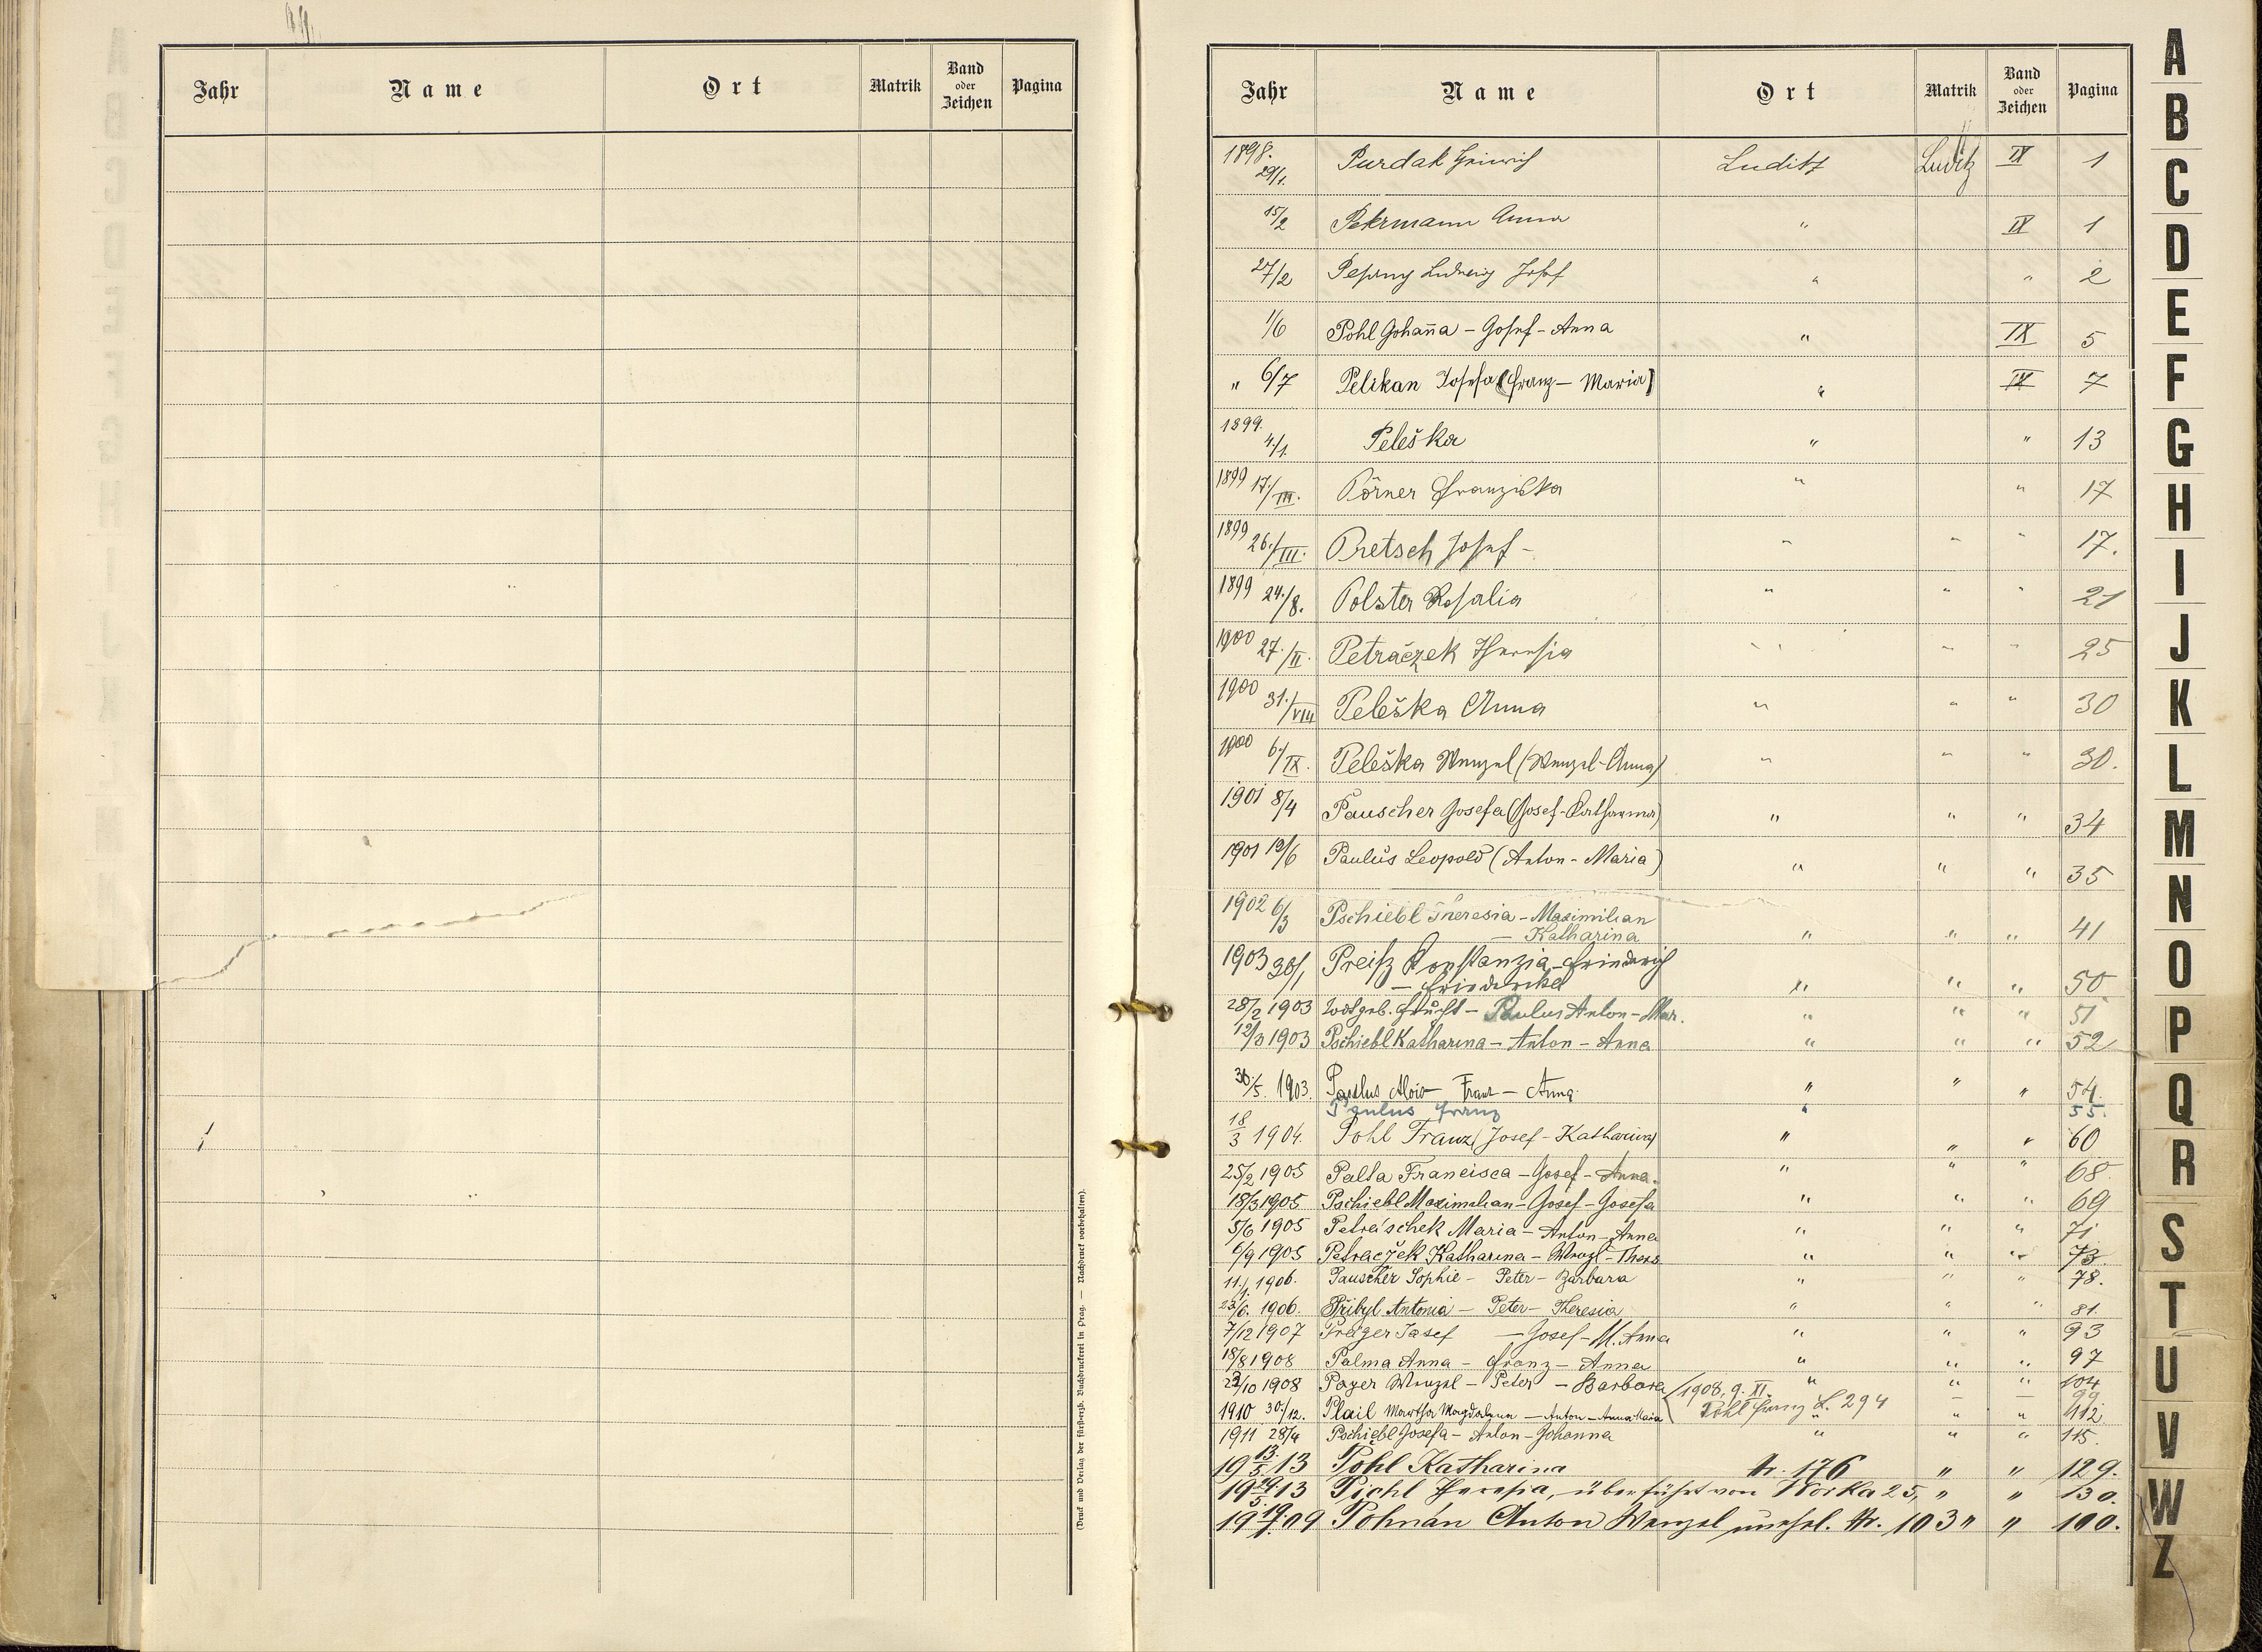 Jahr Name Ort Matrik Band oder Zeichen Pagina
(Druck und Verlag der fürsterzb. Buchdruckerei in Prag. — Nachdruck vorbehalten).
Jahr Name Ort Matrik Band oder Zeichen Pagina
1898. 29/1. Purdak Heinrich Luditz Luditz IX 1
15/2 Pekrmann Anna " IX 1
27/2 Ludwig Josef " " 2
1/6 Pohl Johaña - Josef - Anna " IX 5
" 6/7 Pelikan Josefa (Franz - Maria) " IX 7
1899. 4./1. Peleška " " 13
1899 17./III. Pörner Franziska " " 17
1899 26./III. Pretsch Josef - " " " 17.
1899 24./8. Polster Rosalia " " " 21
1900 27./II. Petráczek Theresia " " " 25
1900 31./VIII Peleška Anna " " " 30
1900 6./IX. Peleška Wenzel (Wenzel-Anna) " " " 30.
1901 8/4 Pauscher Josefa (Josef-Katharina) " " " 34
1901 19/6 Paulus Leopold (Anton - Maria) " " " 35
1902 6/3 Pschiebl Theresia - Maximilian
- Katharina " " " 41
1903 30/1 Preisz Konstanzia - Friedrich
- Friederike " " " 50
28/2 1903 Todtgeb. Frucht - Paulus Anton - Mar. " " " 51
12/3 1903 Pschiebl Katharina - Anton - Anna " " " 52
30/5. 1903. Paulus Alois - Franz - Anna. " " " 54.
Paulus Franz " 55.
18/3 1904. Pohl Franz (Josef - Katharina) " " " 60
25/2 1905 Palta Francisca - Josef - Anna. " " " 68.
18/3 1905 Pschiebl Maximilian - Josef - Josefa " " " 69
5/6 1905 Petraschek Maria - Anton - Anna " " " 71
6/9 1905 Petraczek Katharina - Wenzl - Theres " " " 73.
11./1. 1906. Pauscher Sophie - Peter - Barbara " " " 78.
23/6. 1906. Přibyl Antonia - Peter - Theresia " " " 81.
7/12 1907 Preiger Josef - Josef - M. Anna " " " 93
18/8 1908 Palma Anna - Franz - Anna " " " 97
23/10 1908 Payer Wenzel - Peter - Barbara " " " 104
(1908, 9. XI. Pohl Franz L. 294 - - 99
1910 30./12. Plail Martha Magdalena - Anton - Anna Maria " " " 112.
1911 28/4 Pschiebl Josefa - Anton - Johanna " " " 115.
19 13./5. 13 Pohl Katharina Nr. 176 " " 129.
19 29./5. 13 Pichl Theresia, überführt von Worka 25, " " 130.
19 19./1. 09 Pohnán Anton Wenzel unehel. Nr. 103 " " 100.
A
B
C
D
E
F
G
H
I
J
K
L
M
N
O
P
Q
R
S
T
U
V
W
Z